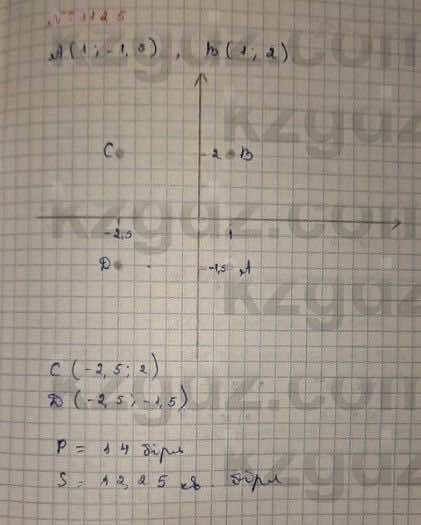 № 1125
A(1; -1,5), B(1; 2)
C 2 B
-2,5 1
D -1,5 A
C (-2,5; 2)
D (-2,5; -1,5)
P = 14 бірл
S = 12,25 кв. бірл
kzgdz.com
kzgdz
kzgdz.com
kzgdz
kzgdz.com
kzgdz